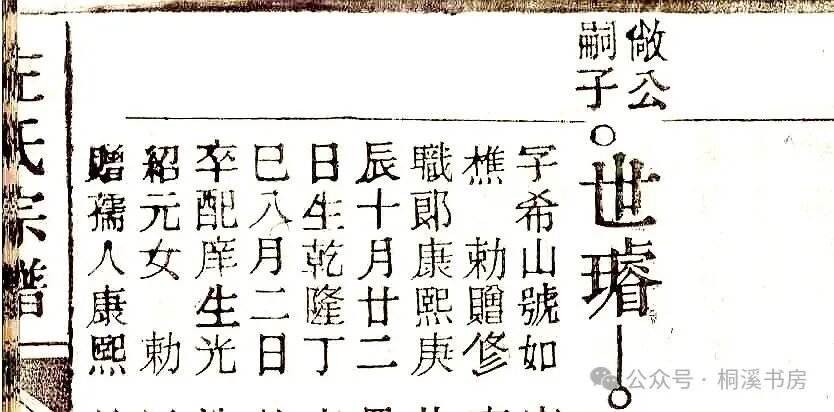 敞公
嗣子
世璿
字希山號如
樵　勅贈修
職郎康熙庚
辰十月廿二
日生乾隆丁
巳八月二日
卒配庠生光
紹元女　勅
贈孺人康熙
氏宗譜
公众号 · 桐溪书房